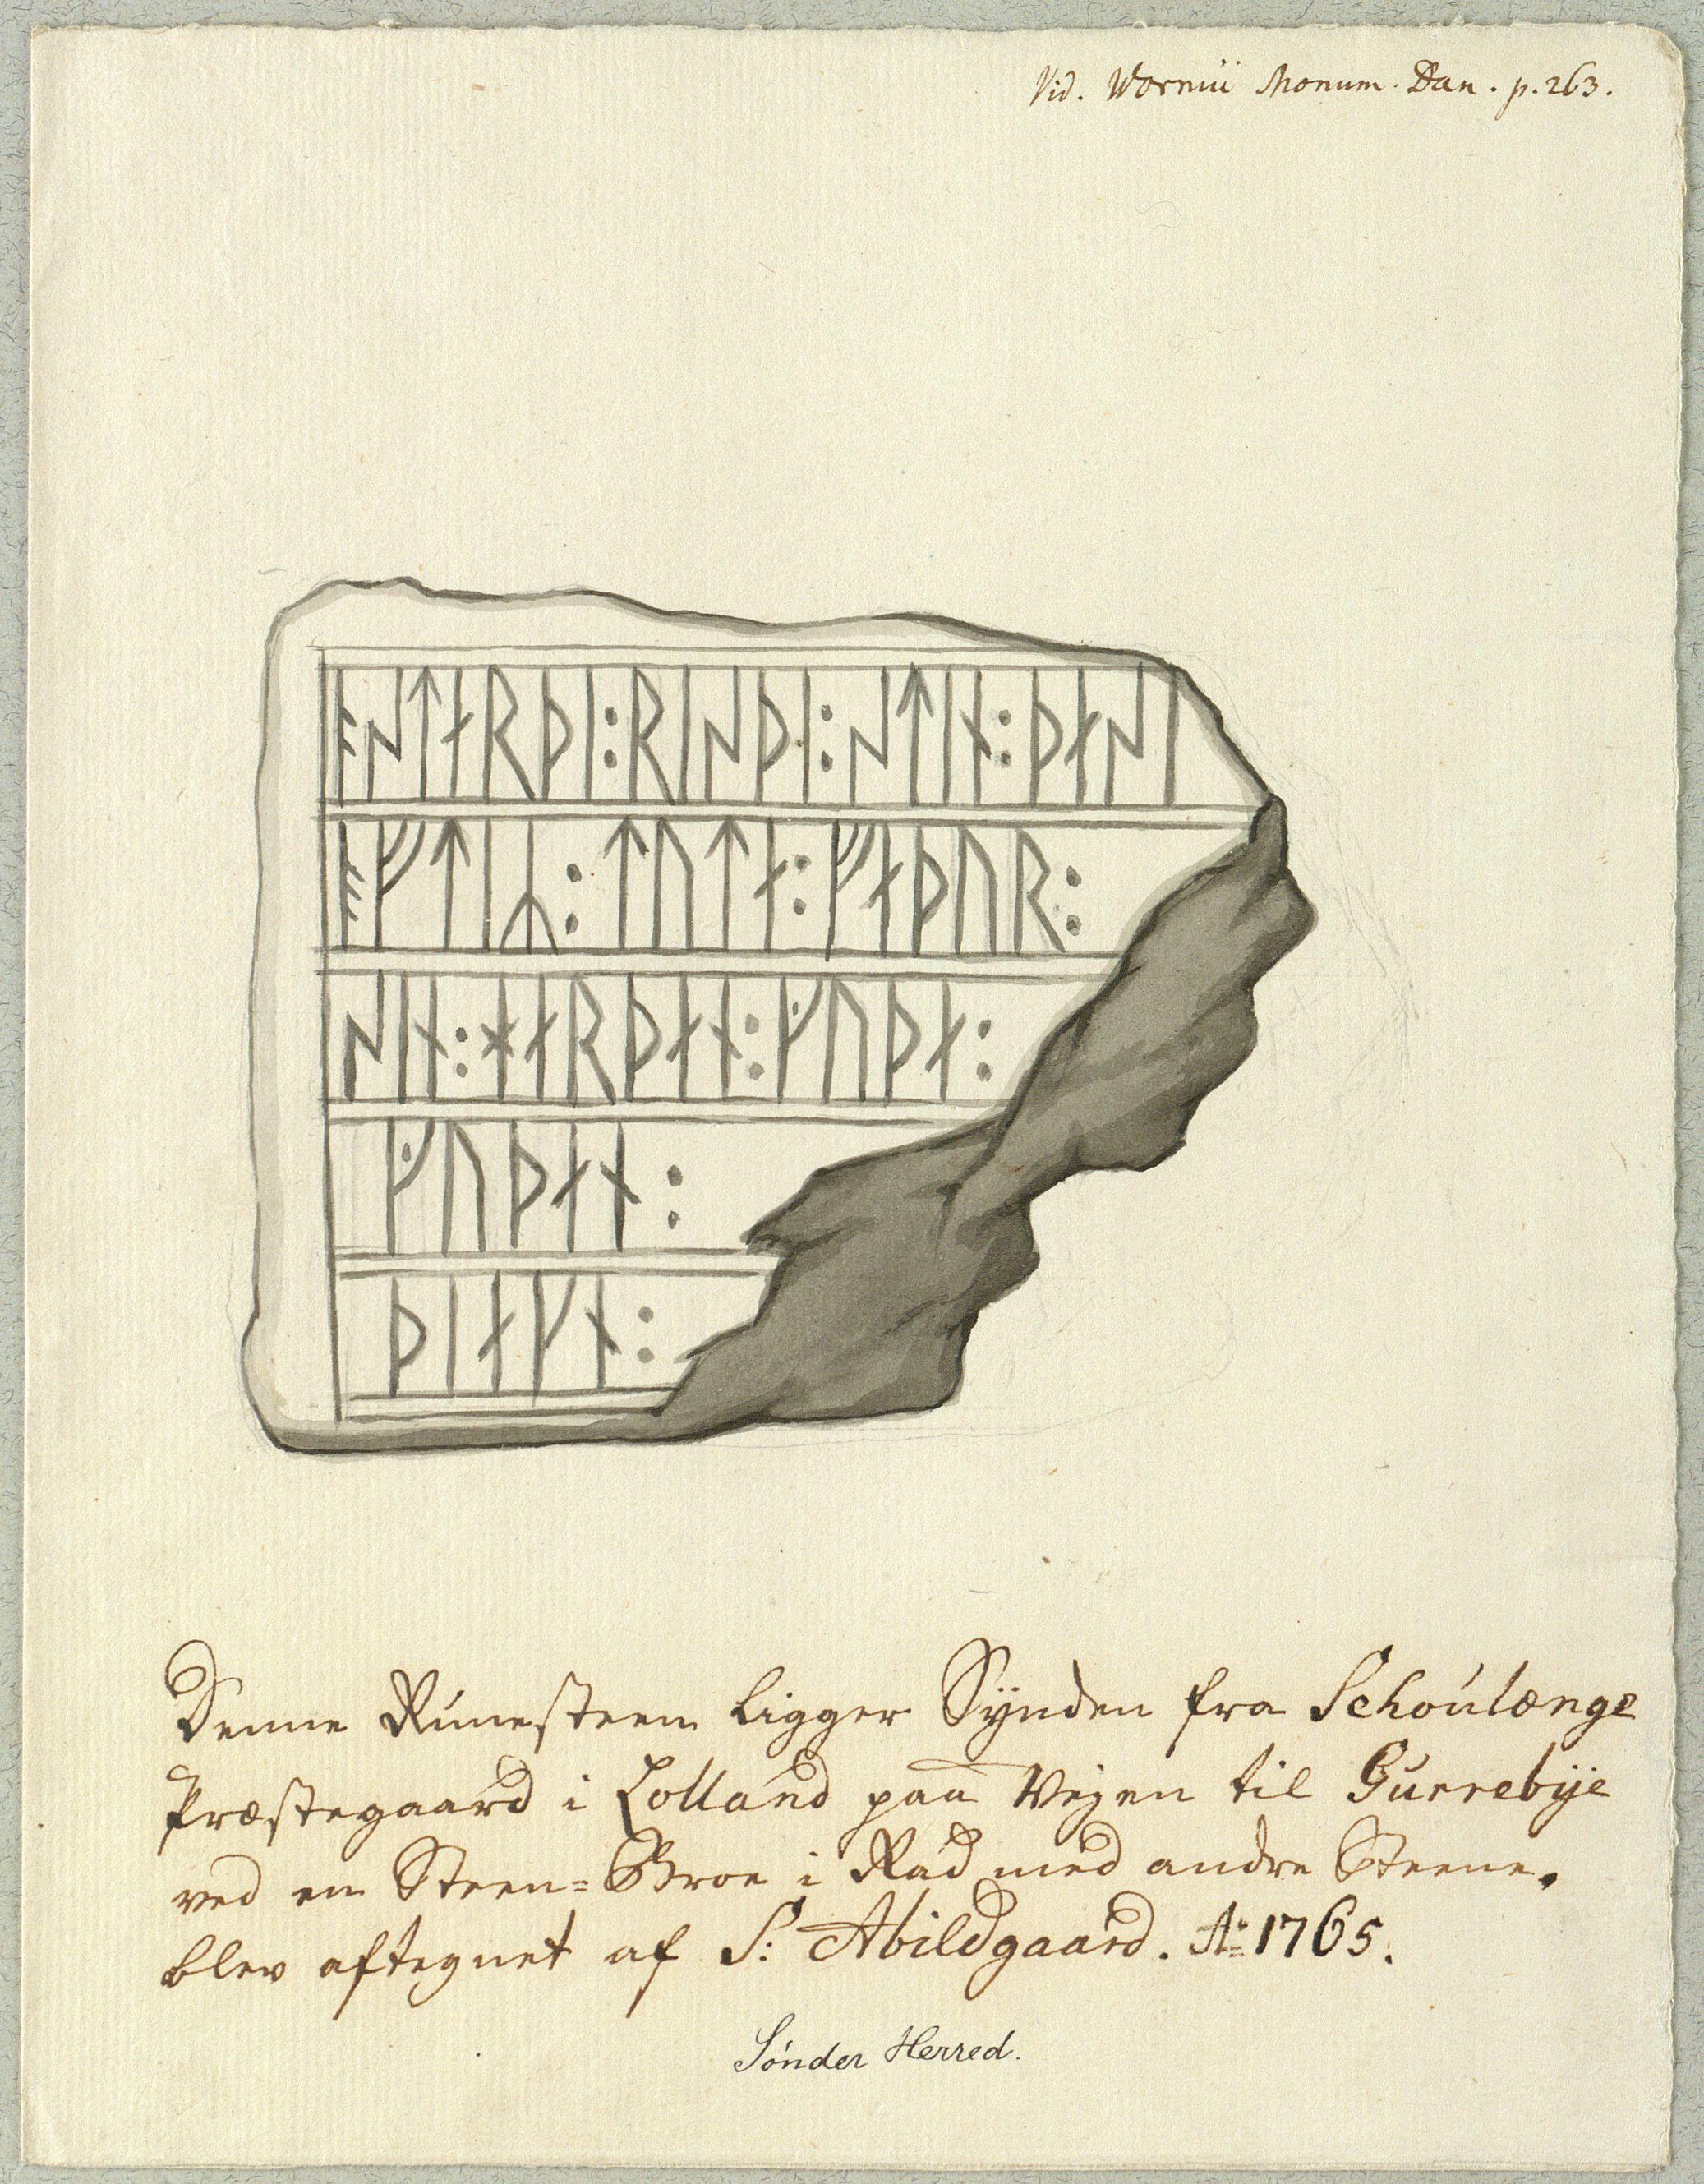 Vid. Wormii Monum. Dan. p. 263.
ᚬᛋᛏᛅᚱᚦᛁ:ᚱᛁᛋᚦᛁ:ᛋᛏᛁᚾ:ᚦᛅᛋᛁ
ᚬᚠᛏᛁᛦ:ᛏᚢᛏᛅ:ᚠᛅᚦᚢᚱ:
ᛋᛁᚾ:ᚼᛅᚱᚦᛅᚾ:ᚵᚢᚦᛅ:
ᚵᚢᚦᛅᚾ:
ᚦᛁᛅᚴᚾ:
Denne Runesteen ligger Synden fra Schoulænge
Præstegaard i Lolland paa Vejen til Gurrebÿe
ved en Steen=Broe i Rad med andre Steene.
blev aftegnet af S: Abildgaard. Aº 1765.
Sønder Herred.